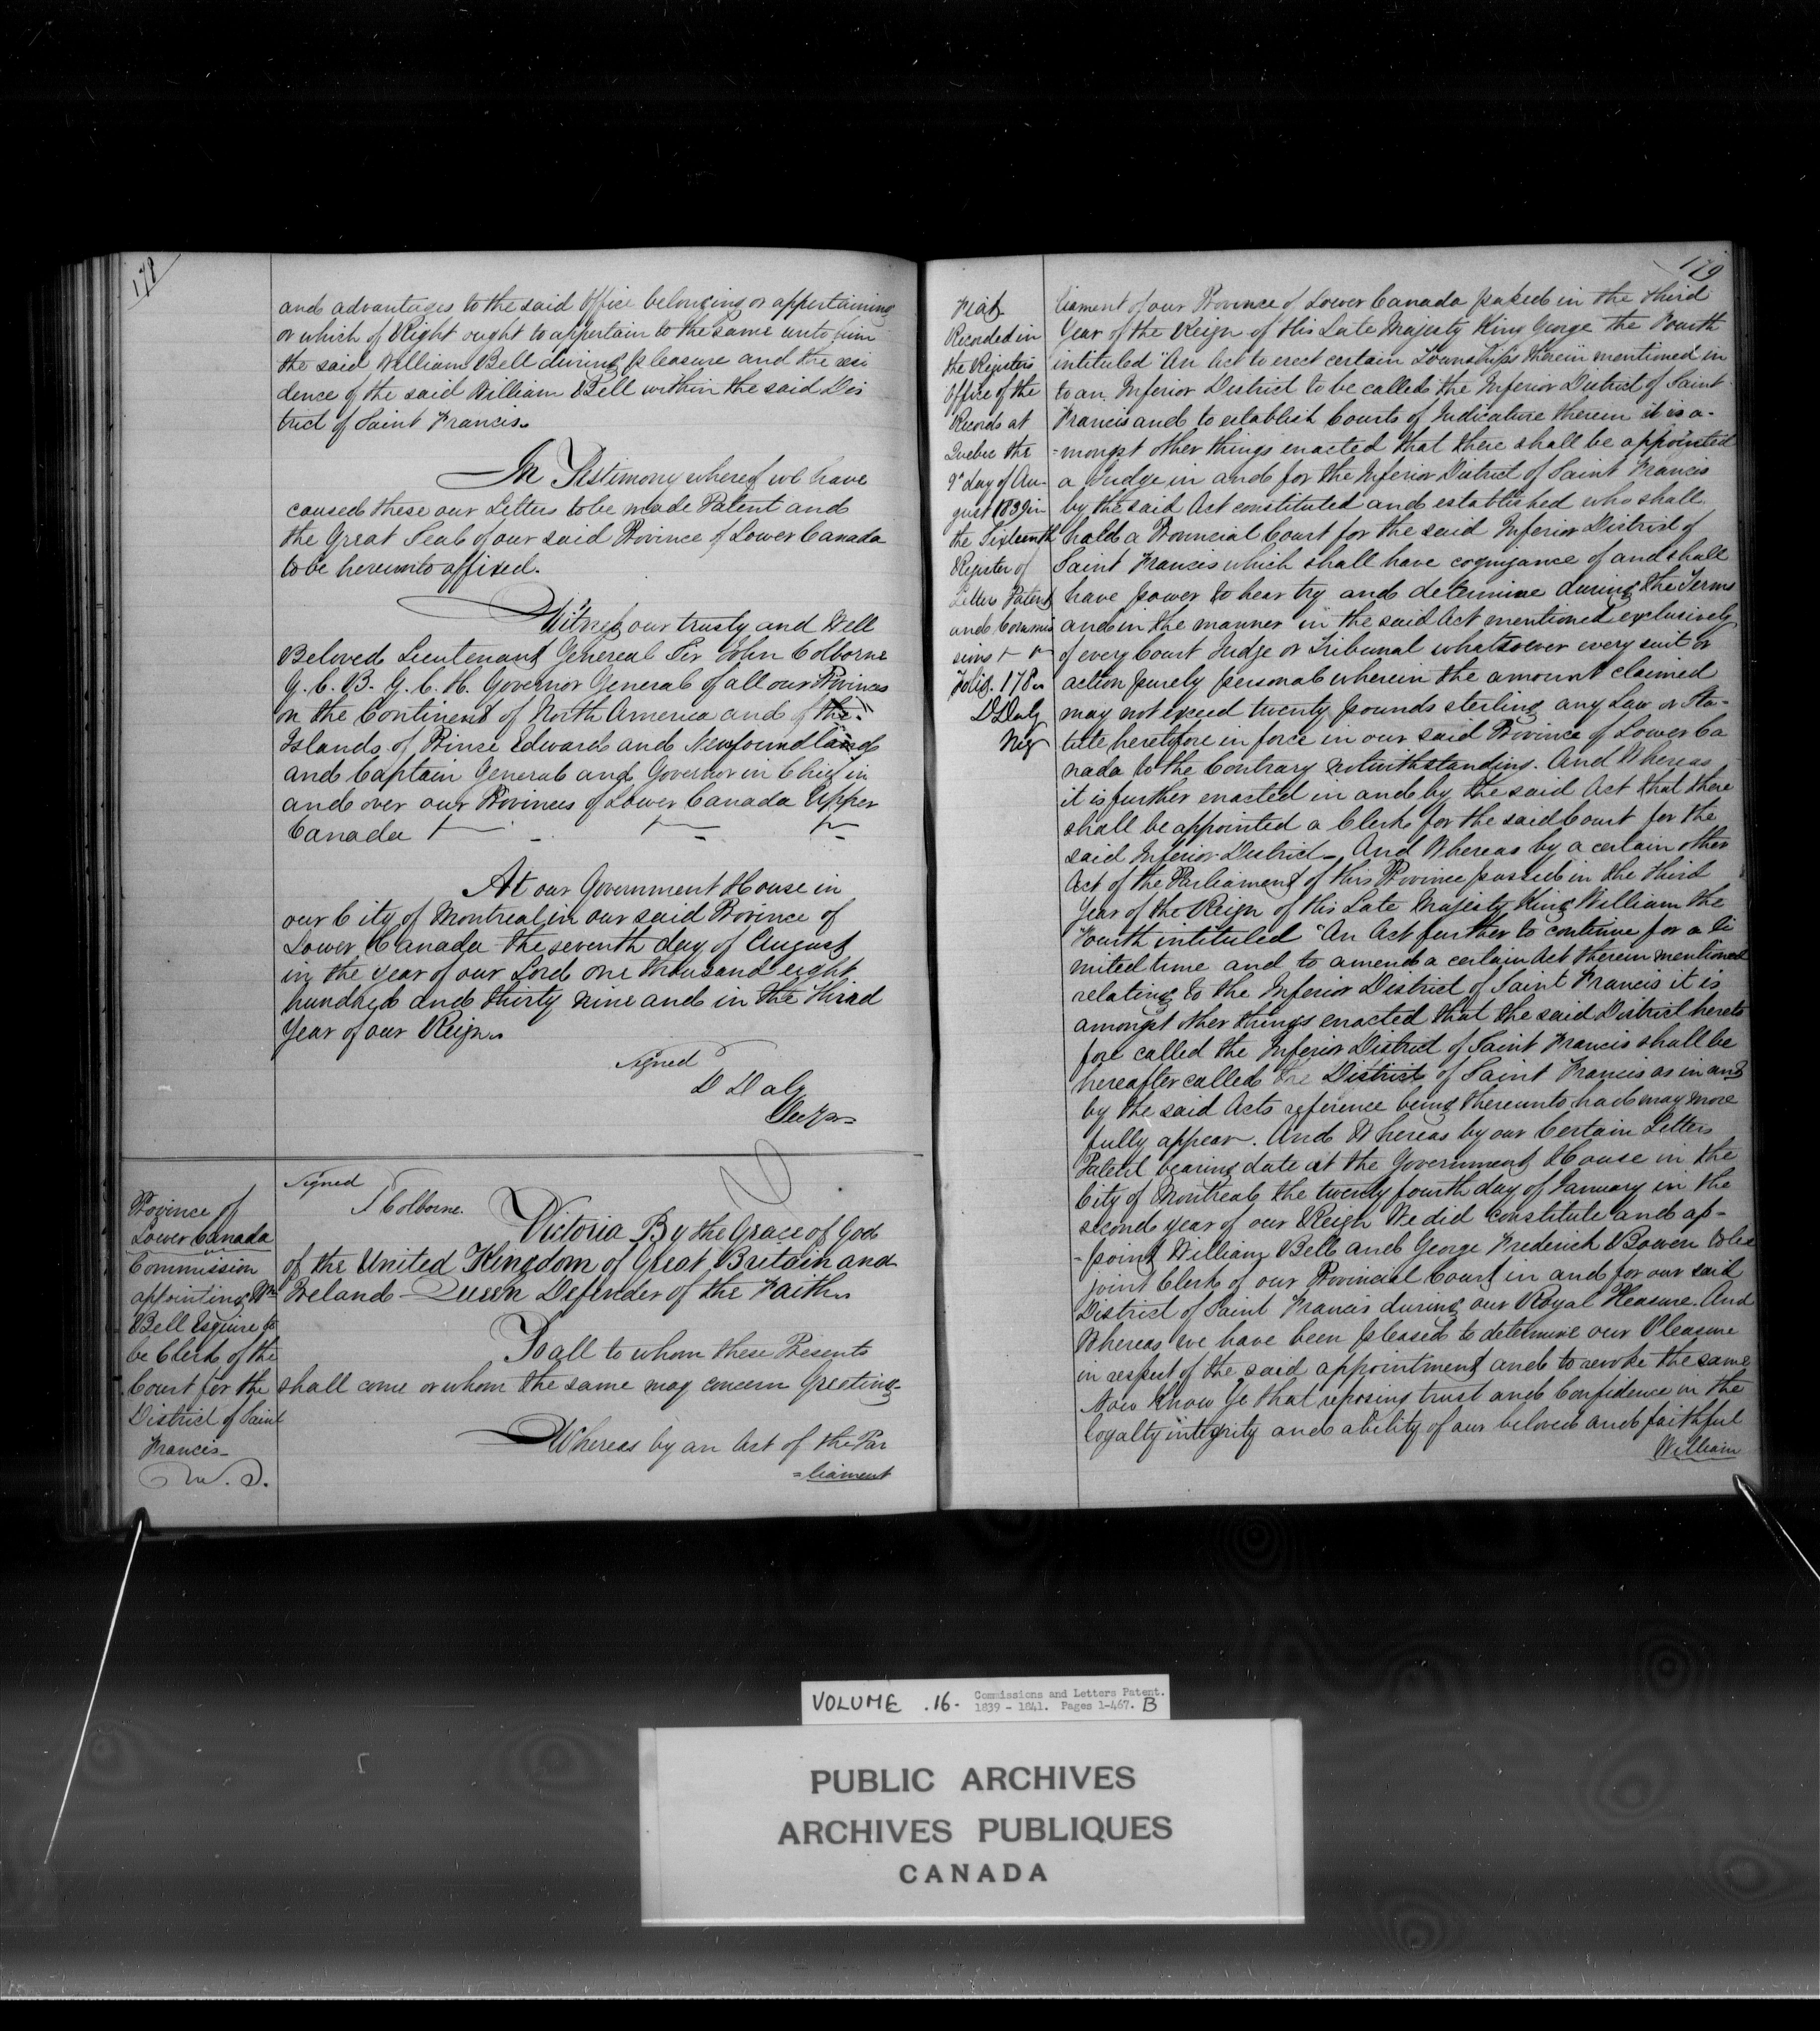 178
and advantages to the said Office belonging or appertaining
or which of Right ought to appertain to the same unto him
the said William Bell during pleasure and the resi
dence of the said William Bell within the said Dis
trict of Saint Francis.
In Testimony whereof we have
caused these our Letters to be made Patent and
the Great Seal of our said Province of Lower Canada
to be hereunto affixed.
Witness our trusty and Well
Beloved Lieutenant Genereal Sir John Colborne
G. C. B. G. C. H. Governor General of all our Provinces
on the Continent of North America and of the
Islands of Prince Edward and Newfoundland
and Captain General and Governor in Chief in
and over our Provinces of Lower Canada Upper
Canada
At our Government House in
our City of Montreal in our said Province of
Lower Canada the seventh day of August
in the year of our Lord one thousand eight
hundred and thirty nine and in the Third
Year of our Reign
Signed
D Daly
Secy
Province of
Lower Canada
Commission
appointing Wm
Bell Esquire to
be Clerk of the
Court for the
District of Saint
Francis
Signed
J Colborne.
Victoria By the Grace of God
of the United Kingdom of Great Britain and
Ireland Queen Defender of the Faith
To all to whom these Presents
shall come or whom the same may concern Greeting
Whereas by an Act of the Par
=liament
179
Fiat
Recorded in
the Registers
Office of the
Records at
Quebec the
9th day of Au-
gust 1839 in
the Sixteenth
Register of
Letters Patent
and Commis
sions
Folio. 178
D Daly
Reg
liament of our Province of Lower Canada passed in the third
Year of the Reign of His Late Majesty King George the Fourth
intituled "An Act to erect certain Townships therein mentioned in
to an Inferior District to be called the Inferior District of Saint
Francis and to establish Courts of Judicature therein it is a-
=mongst other things enacted that there shall be appointed
a Judge in and for the Inferior District of Saint Francis
by the said Act constituted and established who shall
hold a Provincial Court for the said Inferior District of
Saint Francis which shall have cognizance of and shall
have power to hear try and determine during the Terms
and in the manner in the said Act mentioned exclusively
of every Court Judge or Tribunal whatsoever every suit or
action purely personal wherein the amount claimed
may not exceed twenty pounds sterling any Law or Sta-
tute heretofore in force in our said Province of Lower Ca
nada to the Contrary notwithstanding. And Whereas
it is further enacted in and by the said Act that there
shall be appointed a Clerk for the said Court for the
said Inferior District - And Whereas by a certain other
Act of the Parliament of this Province passed in the Third
Year of the Reign of His Late Majesty King William the
Fourth intituled "An Act further to continue for a li
mited time and to amend a certain Act therein mentioned
relating to the Inferior District of Saint Francis it is
amongst other things enacted that the said District hereto
fore called the Inferior District of Saint Francis shall be
hereafter called the District of Saint Francis as in and
by the said Acts reference being thereunto had may more
fully appear. And Whereas by our Certain Letters
Patent bearing date at the Government House in the
City of Montreal the twenty fourth day of January in the
second year of our Reign We did constitute and ap-
-point William Bell and George Frederick Bowen to be
joint Clerk of our Provincial Court in and for our said
District of Saint Francis during our Royal Pleasure. And
Whereas we have been pleased to determine our Pleasure
in respect of the said appointment and to revoke the same
Now Know Ye that reposing trust and Confidence in the
loyalty integrity and ability of our beloved and faithful
William
VOLUME .16. Commissions and Letters Patent.
1839 - 1841. Pages 1-467. B
PUBLIC ARCHIVES
ARCHIVES PUBLIQUES
CANADA